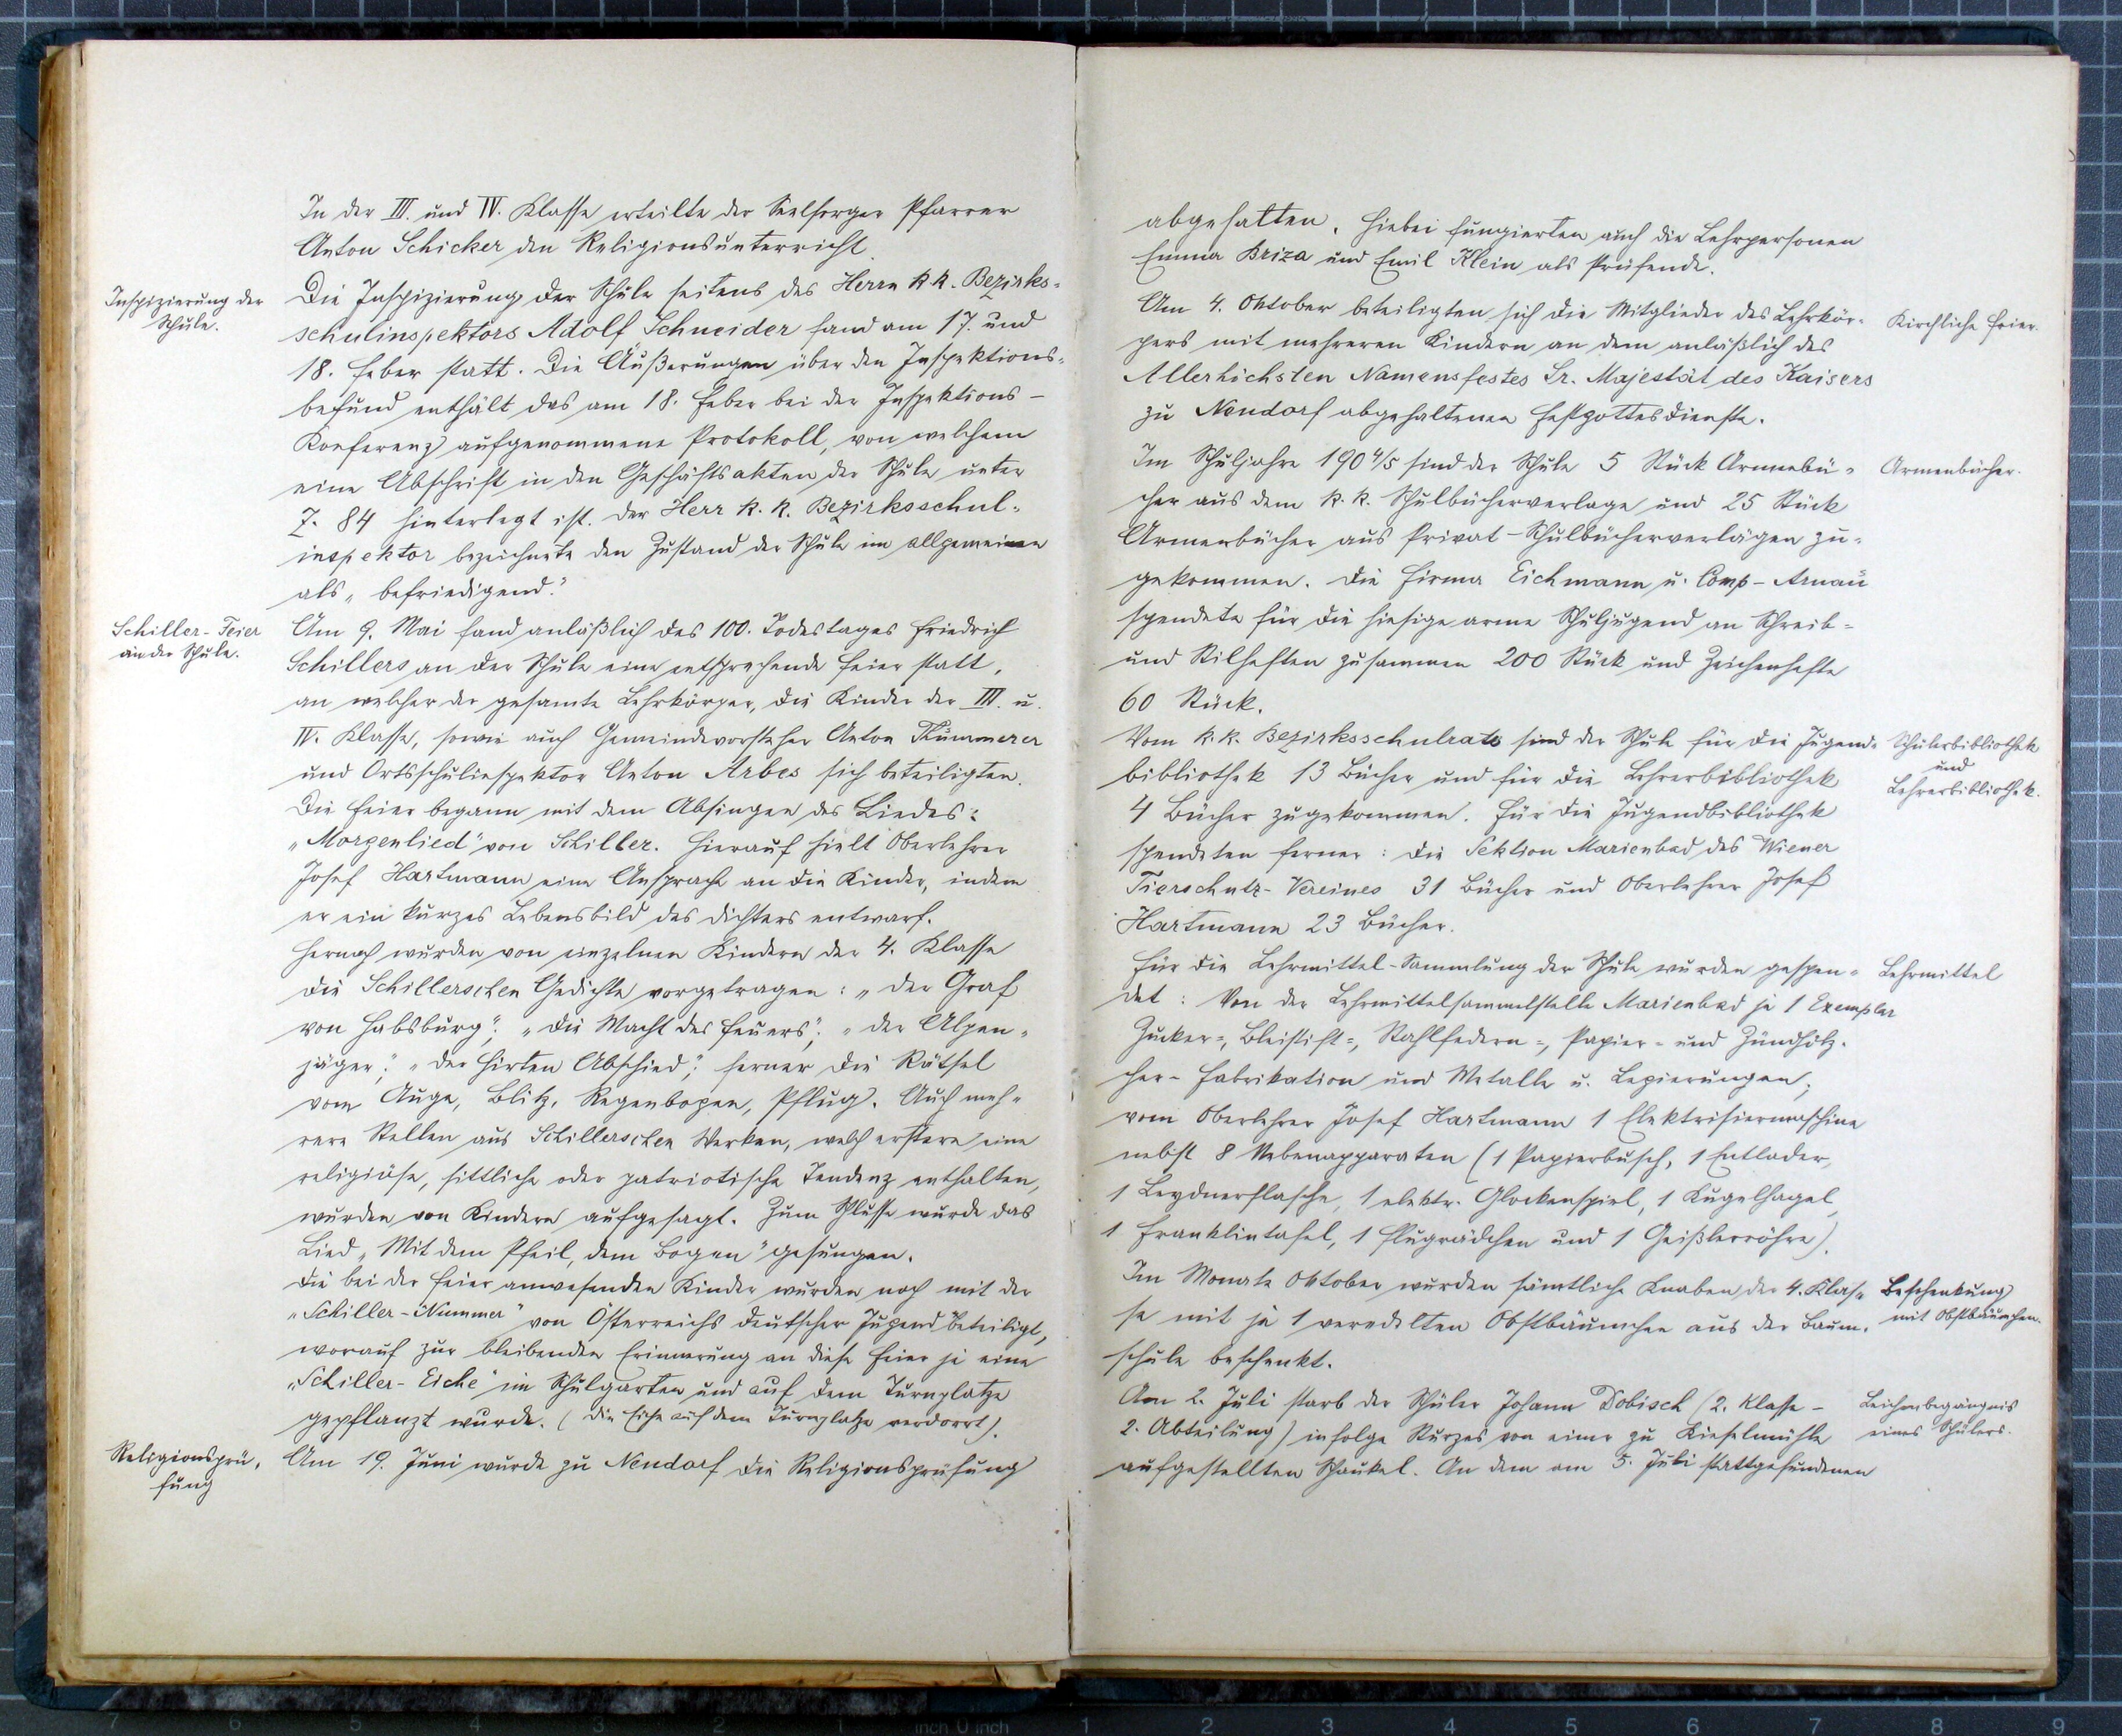 In der III. und IV. Klasse erteilte der Seelsorger Pfarrer
Anton Schicker den Religionsunterricht.
Inspizierung der
Schule.
Die Inspizierung der Schule seitens des Herrn k. k. Bezirks-
schulinspektors Adolf Schneider fand am 17. und
18. Feber statt. Die Äußerungen über den Inspektions-
befund enthält das am 18. Feber bei der Inspektions-
Konferenz aufgenommene Protokoll, von welchem
eine Abschrift in den Geschäftsakten der Schule unter
Z. 84 hinterlegt ist. Der Herr k. k. Bezirksschul-
inspektor bezeichnete den Zustand der Schule im allgemeinen
als „befriedigend."
Schiller-Feier
an der Schule.
Am 9. Mai fand anläßlich des 100. Todestages Friedrich
Schillers an der Schule eine entsprechende Feier statt,
an welcher der gesamte Lehrkörper, die Kinder der III. u.
IV. Klasse, sowie auch Gemeindevorsteher Anton
und Ortsschulinspektor Anton Arbes sich beteiligten.
Die Feier begann mit dem Absingen des Liedes:
„Morgenlied" von Schiller. Hierauf hielt Oberlehrer
Josef Hartmann eine Ansprache an die Kinder, indem
er ein kurzes Lebensbild des Dichters entwarf.
Hernach wurden von einzelnen Kindern der 4. Klasse
die Schillerschen Gedichte vorgetragen: „Der Graf
von Habsburg"; „Die Macht des Feuers"; „Der Alpen-
jäger;" „Des Hirten Abschied;" ferner die Rätsel
vom Auge, Blitz, Regenbogen, Pflug. Auch meh-
rere Stellen aus Schillerschen Werken, welch erstere eine
religiöse, sittliche oder patriotische Tendenz enthalten,
wurden von Kindern aufgesagt. Zum Schlusse wurde das
Lied „Mit dem Pfeil, dem Bogen" gesungen.
Die bei der Feier anwesenden Kinder wurden noch mit der
„Schiller-Nummer" von Österreichs deutscher Jugend" beteiligt,
worauf zur bleibenden Erinnerung an diese Feier je eine
„Schiller-Eiche" im Schulgarten und auf dem Turnplatze
gepflanzt wurde. (Die Eiche auf dem Turnplatze verdorrt).
Religionsprü-
fung
Am 19. Juni wurde zu Neudorf die Religionsprüfung
abgehalten. Hiebei fungierten auch die Lehrpersonen
Emma Briza und Emil Klein als Prüfende.
Am 4. Oktober beteiligten sich die Mitglieder des Lehrkör-
pers mit mehreren Kindern an dem anläßlich des
Allerhöchsten Namensfestes Sr. Majestät des Kaisers
zu Neudorf abgehaltenen Festgottesdienste.
Kirchliche Feier.
Im Schuljahre 1904/5 sind der Schule 5 Stück Armenbü-
cher aus dem k. k. Schulbücherverlage und 25 Stück
Armenbücher aus Privat-Schulbücherverlägen zu-
gekommen. Die Firma Eichmann u. Comp-Arnau
spendete für die hiesige arme Schuljugend an Schreib-
und Stilheften zusammen 200 Stück und Zeichenhefte
60 Stück.
Armenbücher.
Vom k. k. Bezirksschulrate sind der Schule für die Jugend-
bibliothek 13 Bücher und für die Lehrerbibliothek
4 Bücher zugekommen. Für die Jugendbibliothek
spendeten ferner: die Sektion Marienbad des Wiener
Tierschutz-Vereines 31 Bücher und Oberlehrer Josef
Hartmann 23 Bücher.
Schülerbibliothek
und
Lehrerbibliothek.
Für die Lehrmittel-Sammlung der Schule wurden gespen-
det: Von der Lehrmittelsammelstelle Marienbad je 1 Exemplar
Zucker-, Bleistift-, Stahlfedern-, Papier- und Zündhölz-
cher-Fabrikation und Metalle u. Legierungen;
vom Oberlehrer Josef Hartmann 1 Elektrisiermaschine
nebst 8 Nebenapparaten (1 Papierbusch, 1 Entlader,
1 Leydnerflasche, 1 elektr. Glockenspiel, 1 Kugelhagel,
1 Franklintafel, 1 Flugrädchen und 1 Geißlerröhre).
Lehrmittel
Im Monate Oktober wurden sämtliche Knaben der 4. Klas-
se mit je 1 veredelten Obstbäumchen aus der Baum-
schule beschenkt.
Beschenkung
mit Obstbäumchen.
Am 2. Juli starb der Schüler Johann Dobisch (2. Klasse -
2. Abteilung) infolge Sturzes von einer zu Kieselmühle
aufgestellten Schaukel. An dem am 5. Juli stattgefundenen
Leichenbegängnis
eines Schülers.
7 6 5 4 3 2 1 inch 0 inch 1 2 3 4 5 6 7 8 9